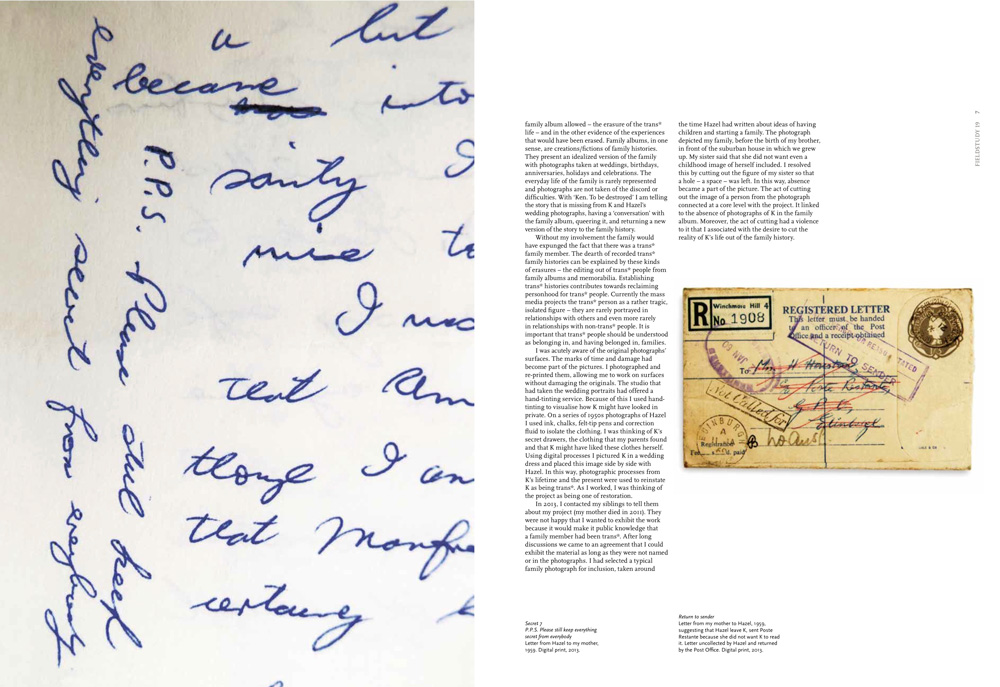 a but
became into
sanity I
nice to
I
that
though I am
that
certainly
P.P.S. Please still keep
everything secret from everybody
FIELDSTUDY 19 7
family album allowed – the erasure of the trans*
life – and in the other evidence of the experiences
that would have been erased. Family albums, in one
sense, are creations/fictions of family histories.
They present an idealized version of the family
with photographs taken at weddings, birthdays,
anniversaries, holidays and celebrations. The
everyday life of the family is rarely represented
and photographs are not taken of the discord or
difficulties. With ‘Ken. To be destroyed’ I am telling
the story that is missing from K and Hazel’s
wedding photographs, having a ‘conversation’ with
the family album, queering it, and returning a new
version of the story to the family history.
Without my involvement the family would
have expunged the fact that there was a trans*
family member. The dearth of recorded trans*
family histories can be explained by these kinds
of erasures – the editing out of trans* people from
family albums and memorabilia. Establishing
trans* histories contributes towards reclaiming
personhood for trans* people. Currently the mass
media projects the trans* person as a rather tragic,
isolated figure – they are rarely portrayed in
relationships with others and even more rarely
in relationships with non-trans* people. It is
important that trans* people should be understood
as belonging in, and having belonged in, families.
I was acutely aware of the original photographs’
surfaces. The marks of time and damage had
become part of the pictures. I photographed and
re-printed them, allowing me to work on surfaces
without damaging the originals. The studio that
had taken the wedding portraits had offered a
hand-tinting service. Because of this I used hand-
tinting to visualise how K might have looked in
private. On a series of 1950s photographs of Hazel
I used ink, chalks, felt-tip pens and correction
fluid to isolate the clothing. I was thinking of K’s
secret drawers, the clothing that my parents found
and that K might have liked these clothes herself.
Using digital processes I pictured K in a wedding
dress and placed this image side by side with
Hazel. In this way, photographic processes from
K’s lifetime and the present were used to reinstate
K as being trans*. As I worked, I was thinking of
the project as being one of restoration.
In 2013, I contacted my siblings to tell them
about my project (my mother died in 2011). They
were not happy that I wanted to exhibit the work
because it would make it public knowledge that
a family member had been trans*. After long
discussions we came to an agreement that I could
exhibit the material as long as they were not named
or in the photographs. I had selected a typical
family photograph for inclusion, taken around
the time Hazel had written about ideas of having
children and starting a family. The photograph
depicted my family, before the birth of my brother,
in front of the suburban house in which we grew
up. My sister said she did not want even a
childhood image of herself included. I resolved
this by cutting out the figure of my sister so that
a hole – a space – was left. In this way, absence
became a part of the picture. The act of cutting
out the image of a person from the photograph
connected at a core level with the project. It linked
to the absence of photographs of K in the family
album. Moreover, the act of cutting had a violence
to it that I associated with the desire to cut the
reality of K’s life out of the family history.
R Winchmore Hill 4
No 1908
REGISTERED LETTER
This letter must be handed
to an officer of the Post
Office and a receipt obtained
RETURN TO SENDER
To
Poste Restante,
G.P.O,
Edinburgh
Not Called for
EDINBURGH
Registration
Fee paid
Secret 7
P.P.S. Please still keep everything
secret from everybody
Letter from Hazel to my mother,
1959. Digital print, 2013.
Return to sender
Letter from my mother to Hazel, 1959,
suggesting that Hazel leave K, sent Poste
Restante because she did not want K to read
it. Letter uncollected by Hazel and returned
by the Post Office. Digital print, 2013.